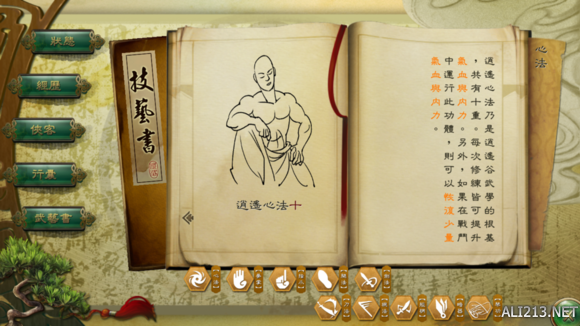 狀態
經歷
俠客
行囊
技藝書
技藝書
逍遙心法十
心法
逍遙心法乃是逍遙谷武學的根基
，共有十重。每次修練皆可提升
氣血與內力。另外，如果在戰鬥
中運行此功體，則可以恢復少量
氣血與內力。
ALI213.NET